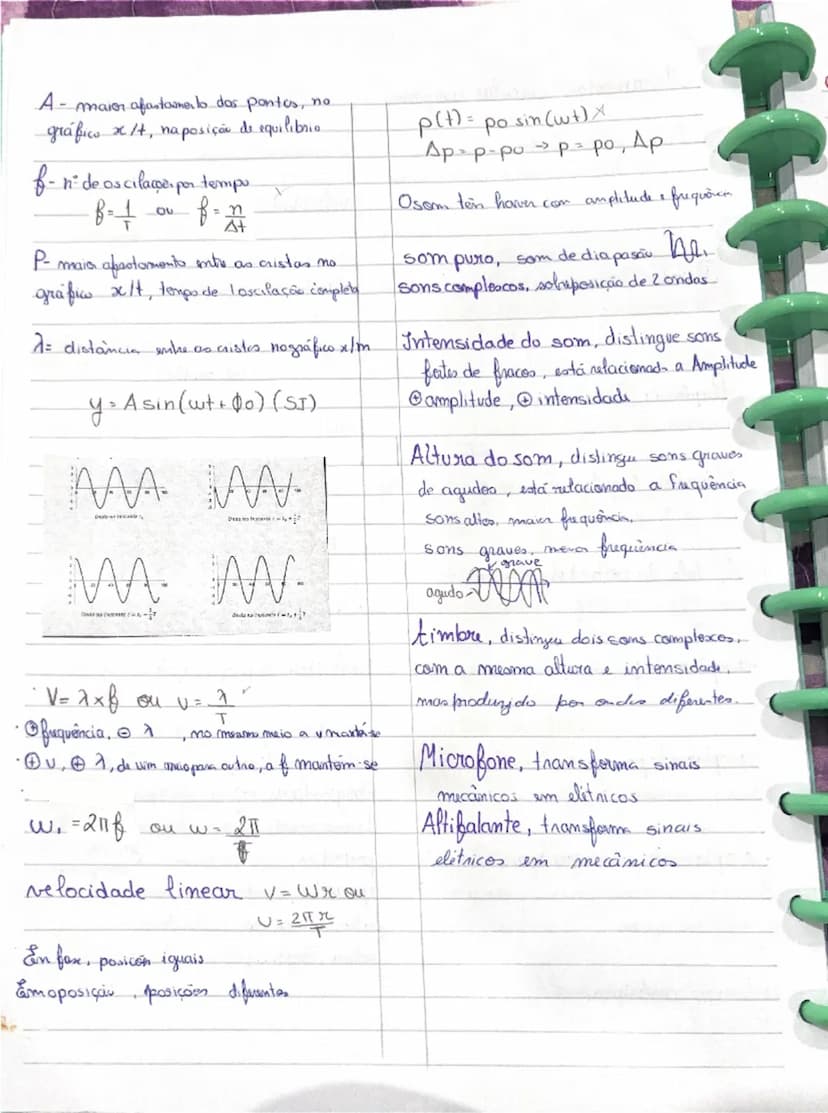 A - maior afastamento dos pontos, no
gráfico x/t, na posição de equilíbrio
f - nº de oscilações por tempo
f = 1/T ou f = n/Δt
P - maior afastamento entre as cristas no
gráfico x/t, tempo de 1 oscilação completa
λ = distância entre as cristas no gráfico x/m
y = A sin(wt + ϕ0) (SI)
Onda no instante t₀
V = λ x f ou v = λ/T
· ⊕ frequência, ⊖ λ, no mesmo meio a v mantém-se
· ⊕ v, ⊕ λ, de um meio para outro, a f mantém-se
w = 2πf ou w = 2π/
velocidade linear v = Wr ou
v = 2πr/T
Em fase, posições iguais
Em oposição, posições diferentes
p(t) = p0 sin(wt)
Δp = p - p0 → p = p0, Δp
O som tem haver com amplitude e frequência
som puro, som de diapasão
sons complexos, sobreposição de 2 ondas
Intensidade do som, distingue sons
fortes de fracos, está relacionado a Amplitude
⊕ amplitude, ⊕ intensidade
Altura do som, distingue sons graves
de agudos, está relacionado a frequência
sons altos, maior frequência,
sons graves, menor frequência
grave
agudo
timbre, distingue dois sons complexos,
com a mesma altura e intensidade,
mas produzido por ondas diferentes.
Microfone, transforma sinais
mecânicos em elétricos
Altifalante, transforma sinais
elétricos em mecânicos